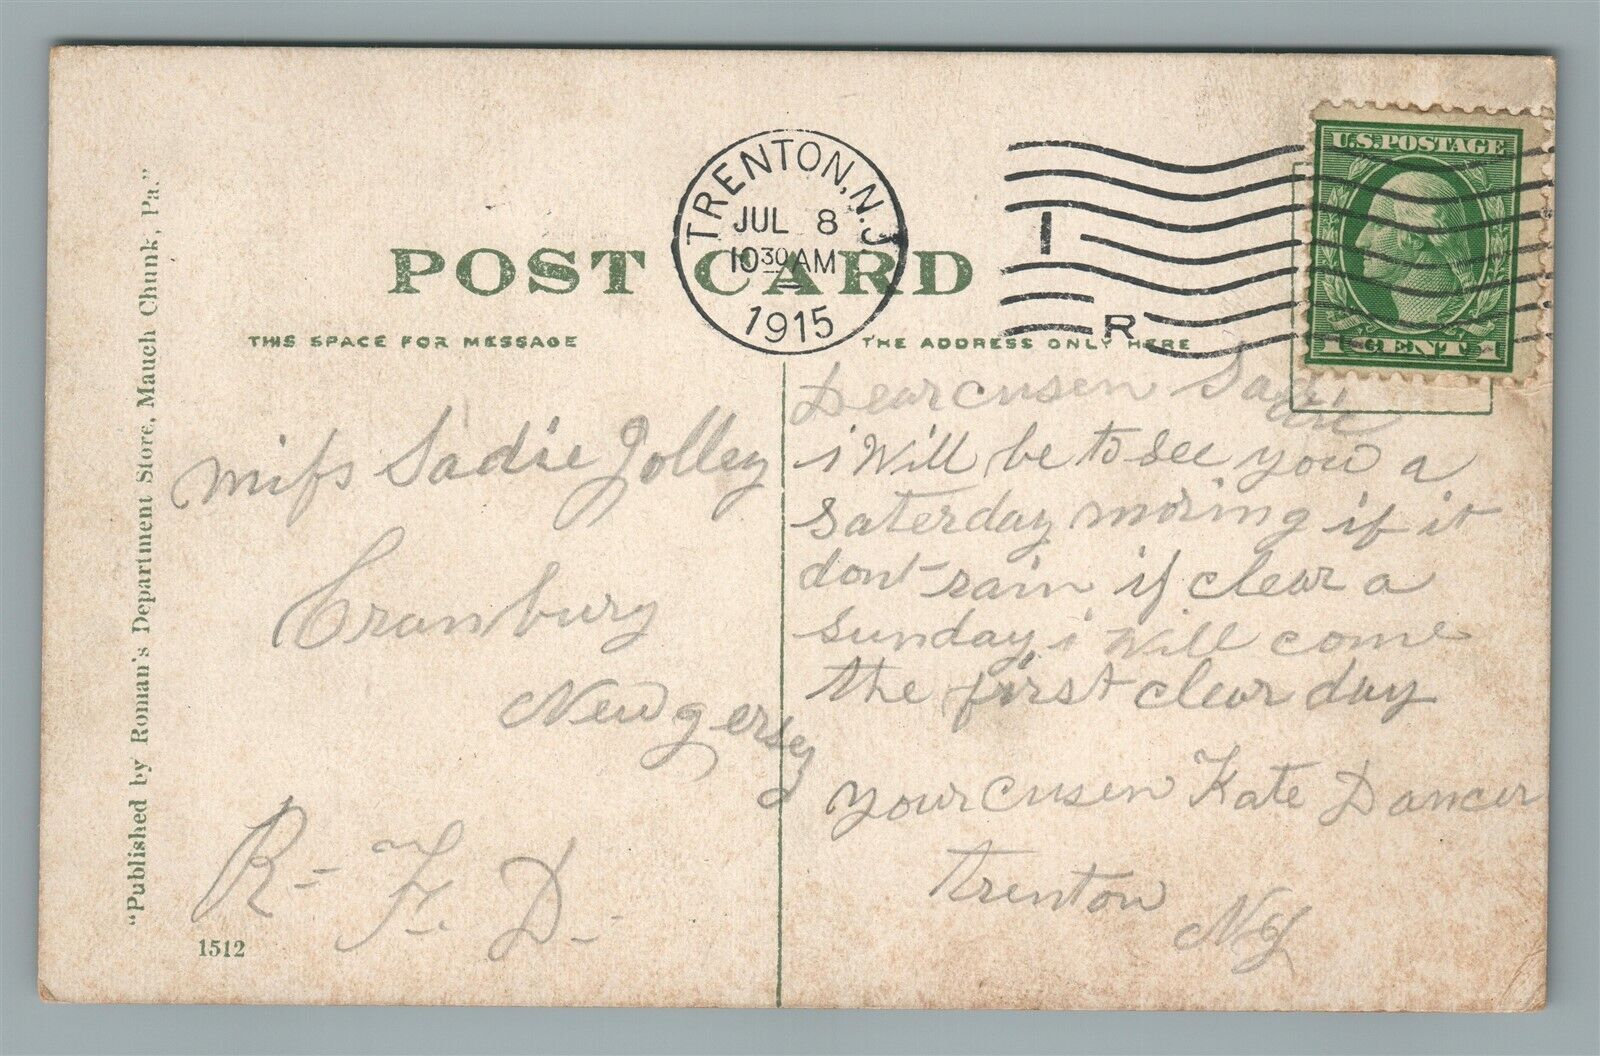 "Published by Roman's Department Store, Mauch Chunk, Pa."
POST CARD
THIS SPACE FOR MESSAGE
THE ADDRESS ONLY HERE
TRENTON, N.J.
JUL 8
10 30 AM
1915
I
R
U.S. POSTAGE
1 CENT 1
miss Sadie Jolley
Cranbury
New gersey
R = F. D.
1512
Dear cusen Sadie
i Will be to see you a
Saterday moring if it
dont rain if clear a
Sunday i will come
the first clear day
your cusen Kate Dancer
Trenton
NJ